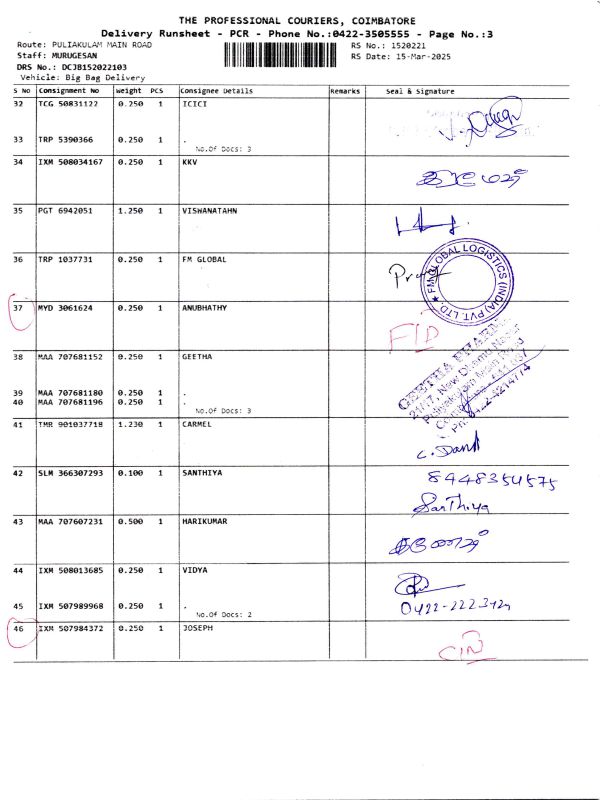 THE PROFESSIONAL COURIERS, COIMBATORE
Delivery Runsheet - PCR - Phone No.:0422-3505555 - Page No.:3
Route: PULIAKULAM MAIN ROAD RS No.: 1520221
Staff: MURUGESAN RS Date: 15-Mar-2025
DRS No.: DCJB152022103
Vehicle: Big Bag Delivery
S No Consignment No Weight PCS Consignee Details Remarks Seal & Signature
32 TCG 50831122 0.250 1 ICICI
33 TRP 5390366 0.250 1 .
No.Of Docs: 3
34 IXM 508034167 0.250 1 KKV
35 PGT 6942051 1.250 1 VISWANATAHN
36 TRP 1037731 0.250 1 FM GLOBAL
FM GLOBAL LOGISTICS (INDIA) PVT. LTD.
37 MYD 3061624 0.250 1 ANUBHATHY
38 MAA 707681152 0.250 1 GEETHA
GEETHA PHARM
39 MAA 707681180 0.250 1 .
40 MAA 707681196 0.250 1 .
No.Of Docs: 3
41 TMR 901037718 1.230 1 CARMEL
42 SLM 366307293 0.100 1 SANTHIYA 8448354575
Santhiya
43 MAA 707607231 0.500 1 HARIKUMAR
44 IXM 508013685 0.250 1 VIDYA
45 IXM 507989968 0.250 1 .
No.Of Docs: 2
46 IXM 507984372 0.250 1 JOSEPH